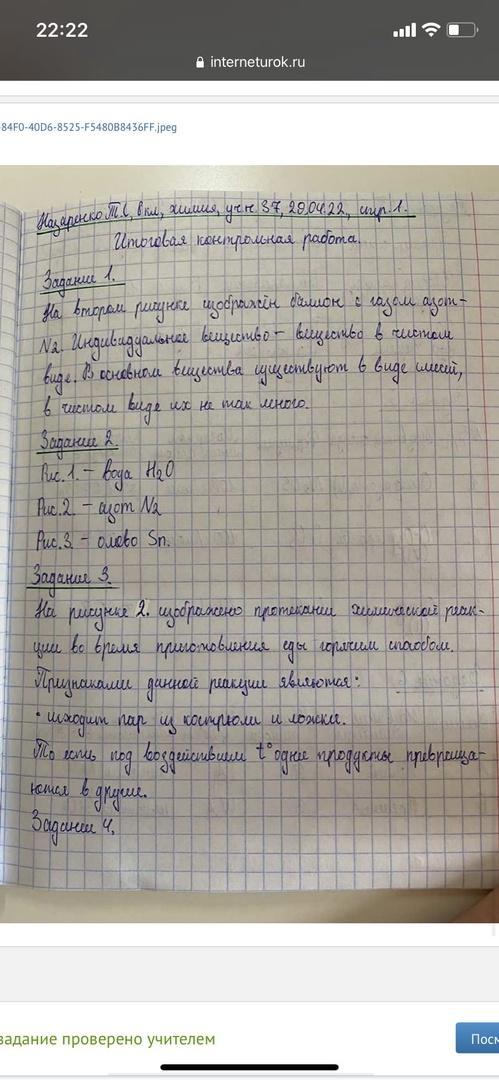 22:22
interneturok.ru
-84F0-40D6-8525-F5480B8436FF.jpeg
Назаренко Т.С, 8 кл, химия, уч.н. 37, 29.04.22, стр. 1.
Итоговая контрольная работа.
Задание 1.
На втором рисунке изображён баллон с газом азот-
N2. Индивидуальное вещество – вещество в чистом
виде. В основном вещества существуют в виде смесей,
в чистом виде их не так много.
Задание 2.
Рис. 1. – вода H2O
Рис. 2. – азот N2
Рис. 3. – олово Sn.
Задание 3.
На рисунке 2. изображено протекание химической реак-
ции во время приготовления еды горячим способом.
Признаками данной реакции являются:
• исходит пар из кострюли и ложки.
То есть под воздействием t° одни продукты превраща-
ются в другие.
Задание 4.
задание проверено учителем
Посм